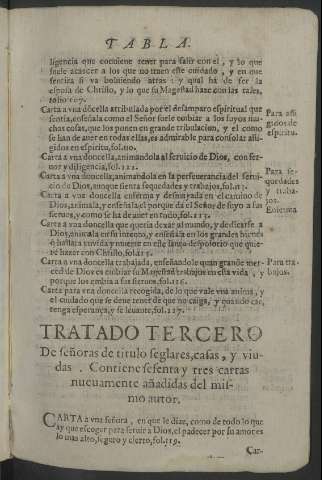 TABLA.
ligencia que conuiene tener para salir con el, y lo que
suele acaecer a los que no traen este cuidado, y en que
sentira si va boluiendo atras : y qual ha de ser la
esposa de Christo, y lo que su Magestad haze con las tales,
folio 107.
Carta a vna dõcella atribulada por el desamparo espiritual que
sentia, enseñala como el Señor suele embiar a los suyos mu-
chas cosas, que los ponen en grande tribulacion, y el como
se han de auer en todas ellas, es admirable para consolar afli-
gidos en espiritu, fol.110.
Para afli
gidos de
espiritu.
Carta a vna doncella, animandola al seruicio de Dios, con fer-
uor y diligencia, fol.122.
Carta a vna doncella, animandola en la perseuerancia del serui-
cio de Dios, aunque sienta sequedades y trabajos, fol.13.
Para se-
quedades
y traba-
jos.
Carta a vna doncella enferma y desmayada en el camino de
Dios, animala, y enseñala el porque da el Señor desmayo a sus
sieruos, y como se ha de auer en todo, fol.113.
Enferma
Carta a vna doncella que queria dexar al mundo, y dedicarse a
Dios, animala en su intento, y enseñala en los grandes bienes
que hallará en vida y muerte en este santo desposorio que quie-
re hazer con Christo, fol.115.
Carta a vna doncella trabajada, enseñandole quan grande mer-
ced de Dios es embiar su Magestad trabajos en esta vida, y
porque los embia a sus sieruos. fol.116.
Para tra-
bajos.
Carta para vna doncella recogida, de lo que vale vna anima, y
el cuidado que se deue tener de que no caiga, y quando cae,
tenga esperança, y se leuante, 127.
TRATADO TERCERO
De señoras de titulo seglares, casas, y viu-
das. Contiene sesenta y tres cartas
nueuamente añadidas del mis-
mo autor.
CARTA a vna señora, en que le dize, como de todo lo que
ay que escoger para seruir a Dios, el padecer por su amor es
lo mas alto, seguro y cierto, fol.119.
Car-